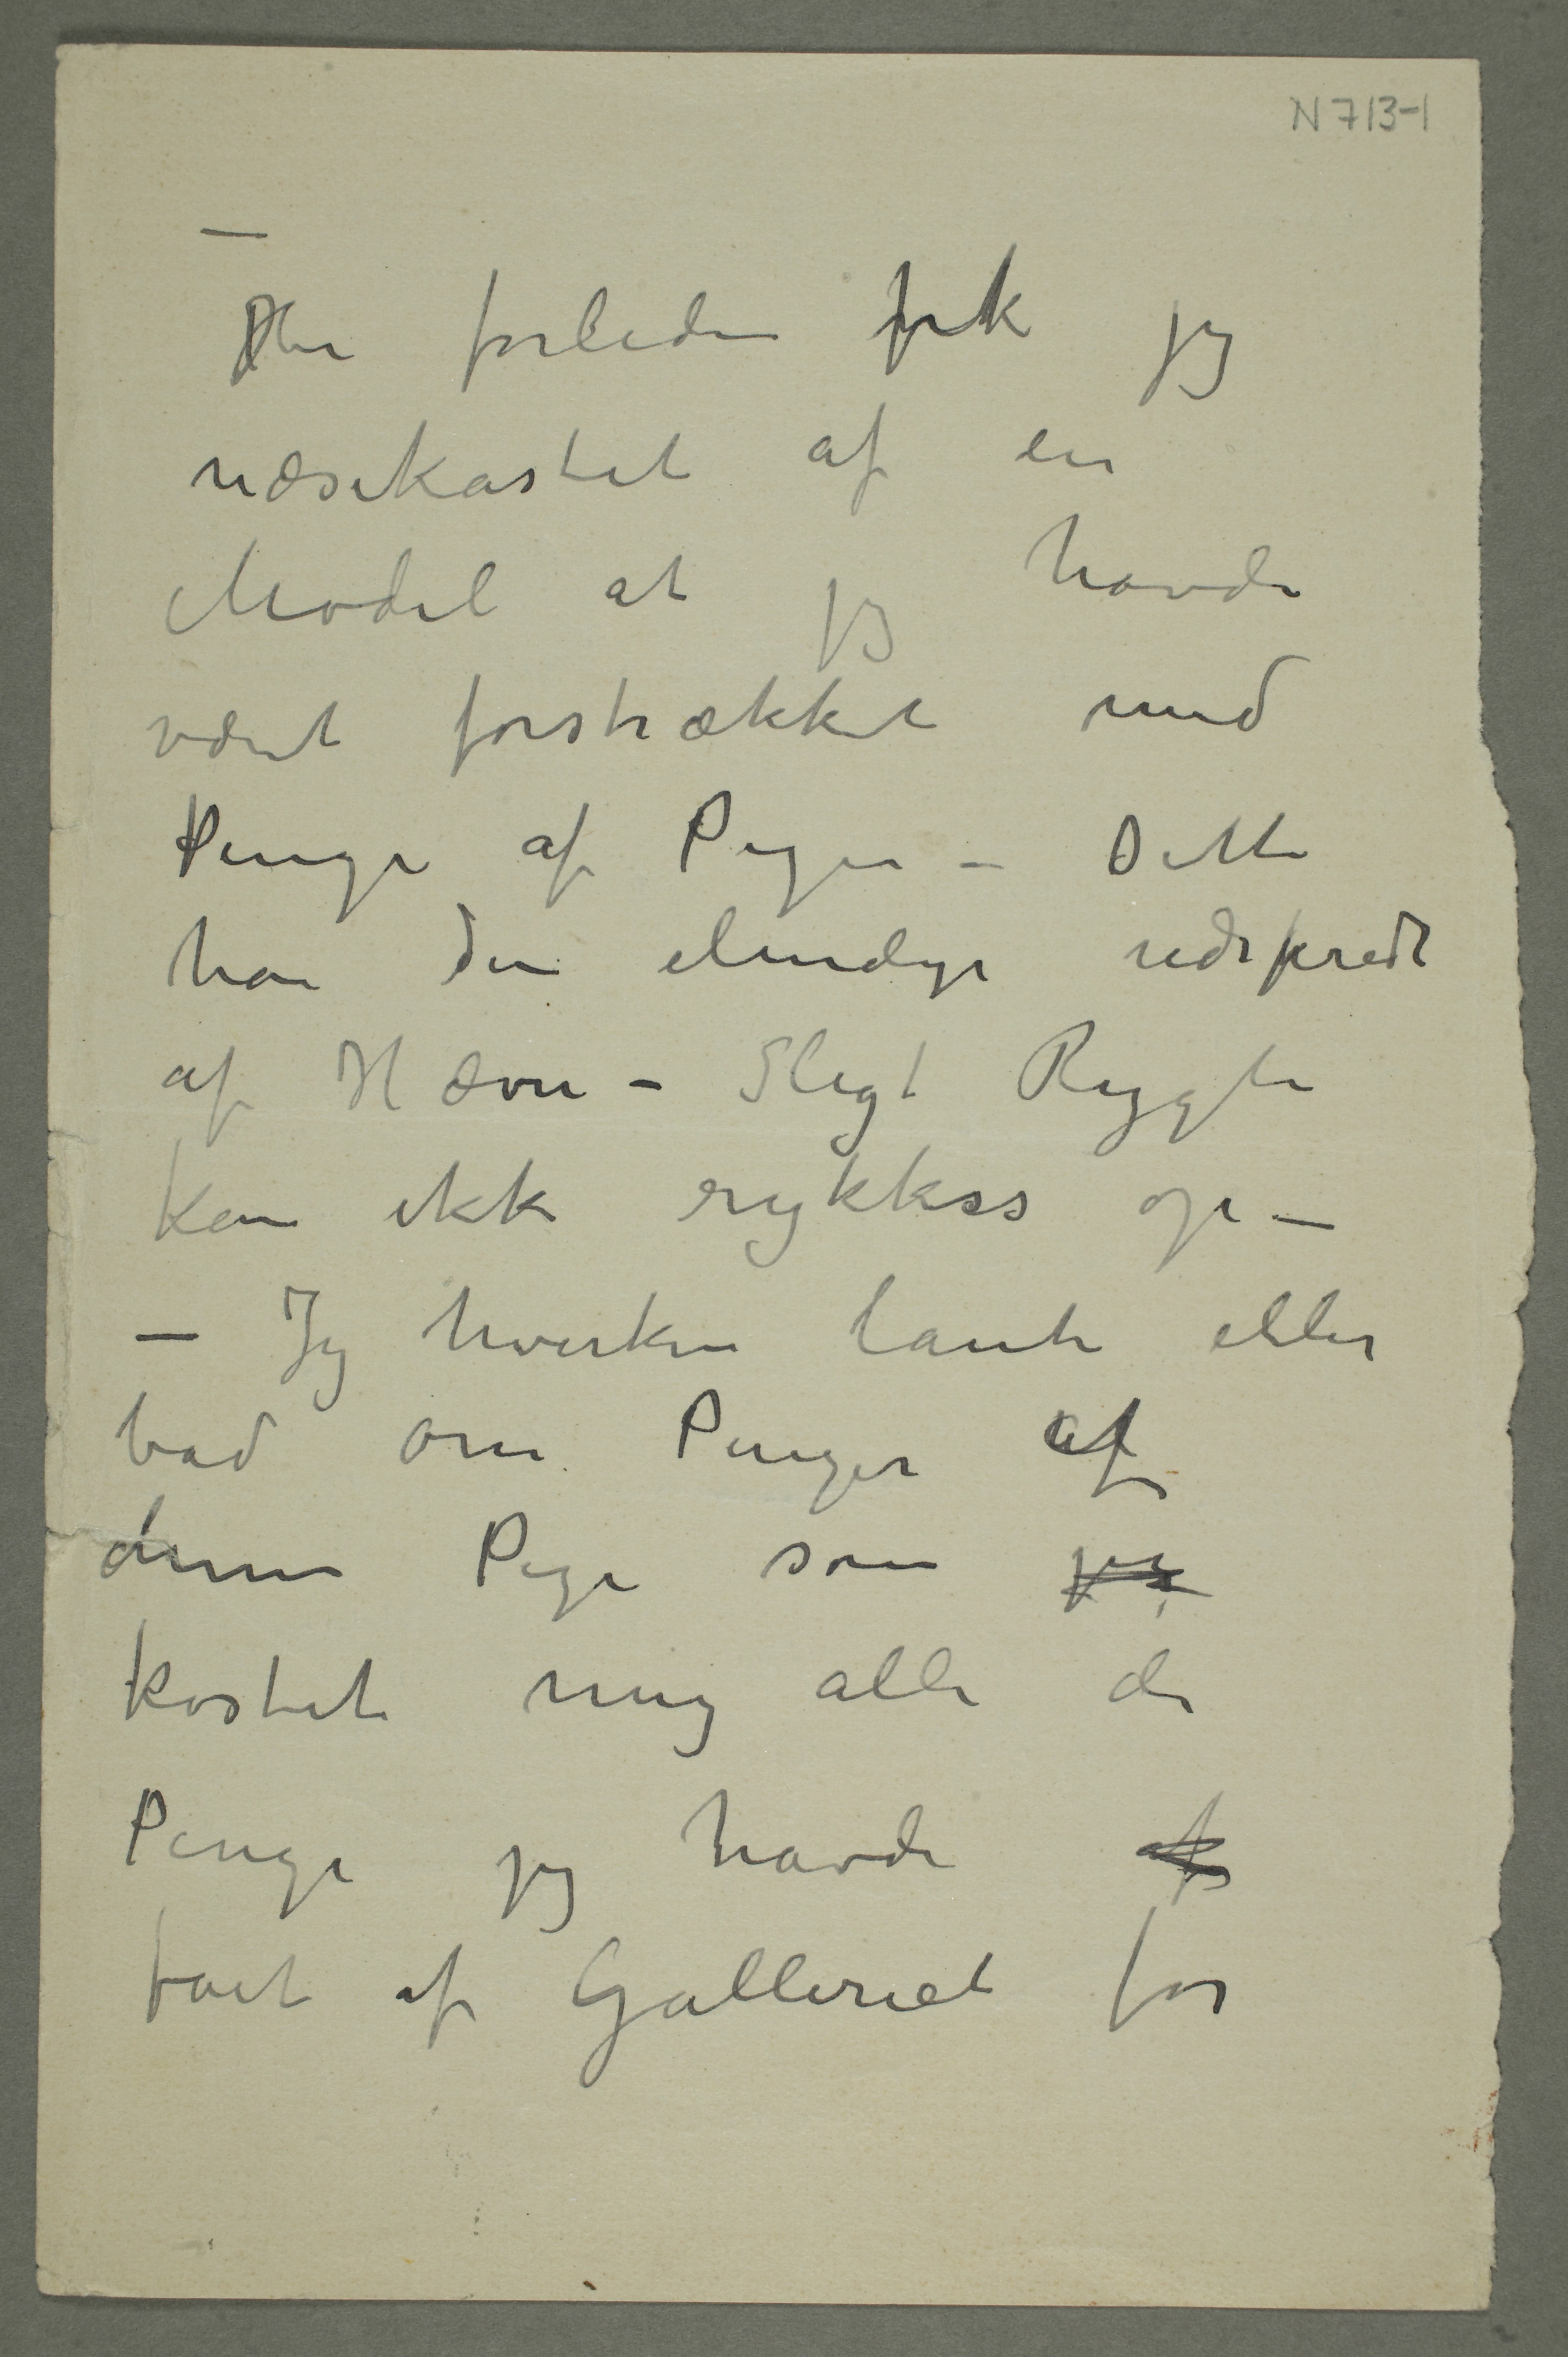 N 713-1
—
Her forleden fik jeg
næsekastet af en
Model at jeg havde
været forstrækket med
Penge af Piger – Dette
har den elendige udspredt
af Hævn – Sligt Rygte
kan ikke rykkess op –
– Jeg hverken laante eller
bad om Penger af
denne Pige som jeg
kostet mig alle de
Penge jeg havde af
faaet af Galleriet for